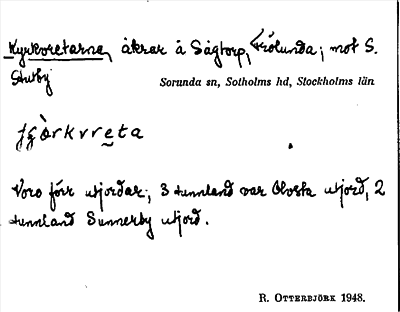 Kyrkvretarna, åkrar å Sågtorp, Frölunda; mot S.
Stutby
Sorunda sn, Sotholms hd, Stockholms län
Voro förr utjordar; 3 tunnland var Olosta utjord, 2
tunnland Sunnerby utjord.
R. OTTERBJÖRK 1948.